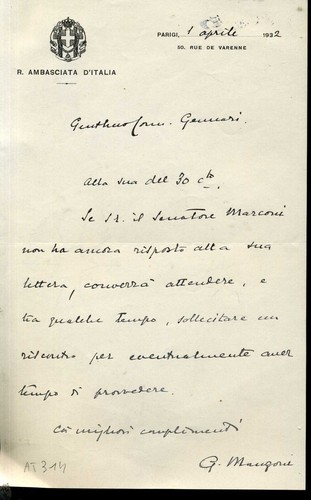 PARIGI, 1 aprile 1932
50. RUE DE VARENNE
R. AMBASCIATA D'ITALIA
Gentmo Com. Gennari.
Alla sua del 30 cto.
Se S.E. il Senatore Marconi
non ha ancora risposto alla sua
lettera, converrà attendere, e
tra qualche tempo, sollecitare un
riscontro per eventualmente aver
tempo di provvedere.
Coi migliori complimenti
G. Mangoni
AT 314